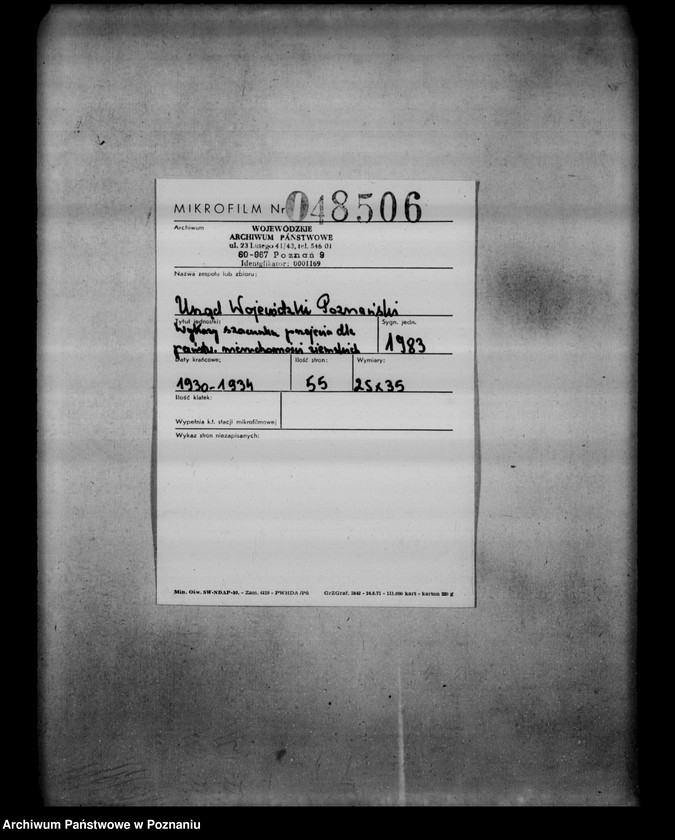 MIKROFILM Nr 048506
Archiwum
WOJEWÓDZKIE
ARCHIWUM PAŃSTWOWE
ul. 23 Lutego 41/43, tel. 546 01
60-967 Poznań 9
Identyfikator: 0001169
Nazwa zespołu lub zbioru:
Urząd Wojewódzki Poznański
Tytuł jednostki: Sygn. jedn.
Wykazy szacunku przejęcia dla
państw. nieruchomości ziemskich 1983
Daty krańcowe: Ilość stron: Wymiary:
1930-1934 55 25x35
Ilość klatek:
Wypełnia kł. stacji mikrofilmowej
Wykaz stron niezapisanych:
Min. Ośw. SW-NDAP-50. - Zam. - PWHDA /P6 GrZGraf. - karton g
Archiwum Państwowe w Poznaniu